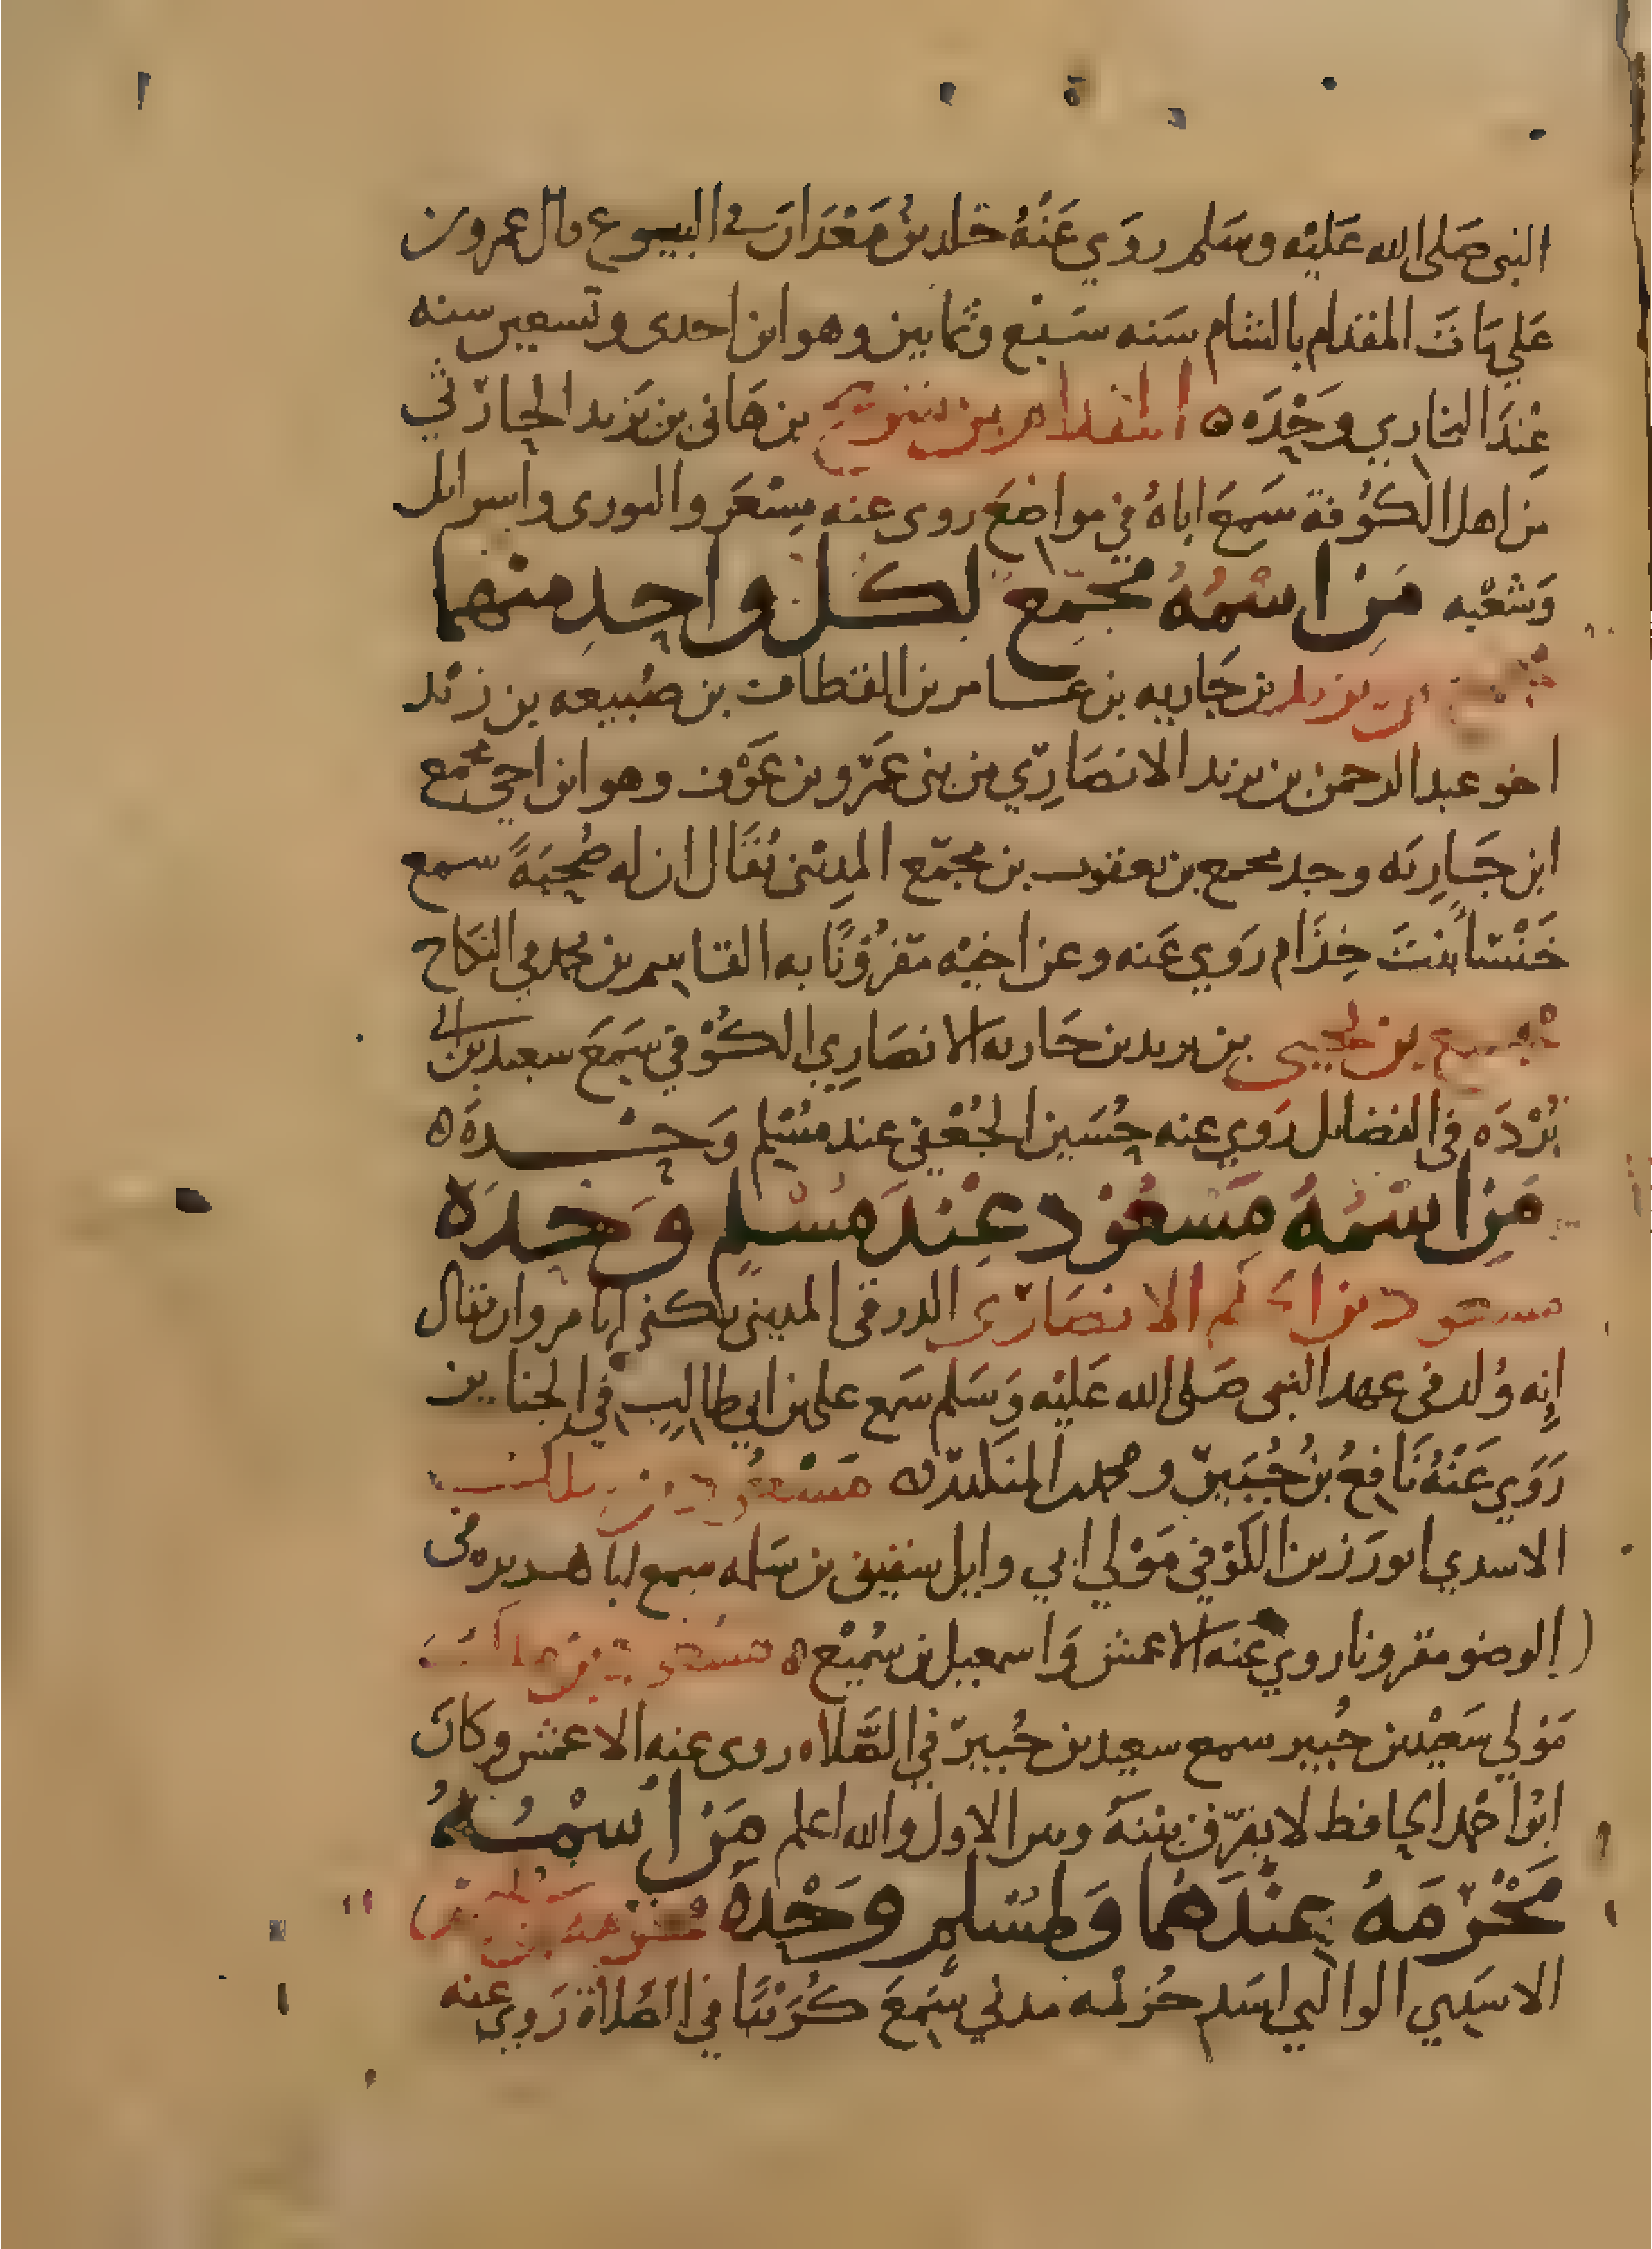 النبي صَلى الله عَليْه وسَلم روَي عَنْهُ خلد بنُ مَعْدَان في البيوع قال عمرو بن
عَلي مَاتَ المقدام بالشام سَنه سَبْع وثمانين وهو ابن احدى وتسعين سنه
عِنْدَ البخاري وحْدَه ۞ المقدام بن شريح بن هَاني بن يزيد الحارثي
من اهل الكُوْفة سَمعَ اباهُ في مواضعَ روى عنه مِسْعَر والثورى واسرائل
وَشعْبه مَنِ اسْمُهُ مُجَمّع لكل واحِدٍ منهما
بن يزيد بن جَاريه بن عامر بن العطاف بن ضُبيعه بن زيد
اخو عبد الرحمن بن يزيد الانصَارِيّ من بنى عَمْرو بن عَوْف وهو ابن اخي مجمع
ابن جَارِيَه وجد مجمع بن يعقوب بن مجمّع المدِيْنى يُقَال ان له صُحْبَةً سمع
خَنْسَا بنْتَ خِذَام رَوَي عَنه وعن اخيْه مَقْرُوْنًا به القاسِم بن محمد في النكاح
مجمع بن يحيى بن يزيد بن جَاريه الانصَارِي الكُوْفي سَمَعَ سعيد بن ابي
بُرْدَه في الفضائل رَوَي عنه حُسَين الجُعْفي عند مُسْلم وَحْدَهُ ۞
مَنِ اسْمُهُ مَسْعُوْد عِنْدَ مُسْلمٍ وَحْدَهُ
مسعود بن الحكم الانصَارِي الزرقى المديني يكنى ابا مروان يقال
اِنه وُلد في عهد النبي صَلى الله عَليْه وَسَلم سَمع على بن ابي طالبٍ في الجنايز
رَوَي عَنْهُ نَافعُ بنُ جُبَيْر ومحمد المنكدر ۞ مَسْعُود بن مالك
الاسدي ابو رَزين الكوْفي مَوْلي ابي وايل شقيق بن سَلمه سمع ابا هريره في
الوضو مقرونا روي عَنه الاعمش وَاسمعيل بن سُمَيْع ۞ مسعود بن مالك
مَوْلي سَعيْد بن جُبير سمع سعيد بن جُبيرٍ في الصَّلاه روى عنه الاعمش وكانَ
ابُوْ احْمد الحافظ لا يفرّق بيْنَهُ وبين الاول والله اعلم مَنِ اسْمُهُ
مَخْرَمَهُ عِنْدَهُمَا وَلمُسْلمٍ وَحْدَهُ مخرمه بن سليمن
الاسَدِي الوالبي اسَد خُزيمه مدني سَمعَ كُرَيْبًا في الصَّلاة رَوي عنه